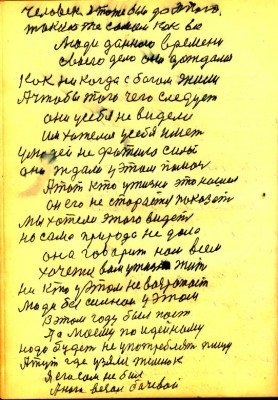 Человек этоже был до этого,
такие же самые как вы
Люди данного времени
своего дело они дождали
Как никогда с богом жили
А чтобы того чего следует
они усебя не видели
им хотелось усебя имет
у людей не фатило силы
они ждали у этом
А тут кто ужизни это нашел
он его не старается показат
Мы хотели этого видет
но сама природа не дала
она говорит нам всем
хочете вам жит
ни кто у этом не возротает
Люди бессильни у этом
В этом году был пост
По Моему по идейному
надо будет не употреблят пищу
А тут где узяли
Я сосам не был